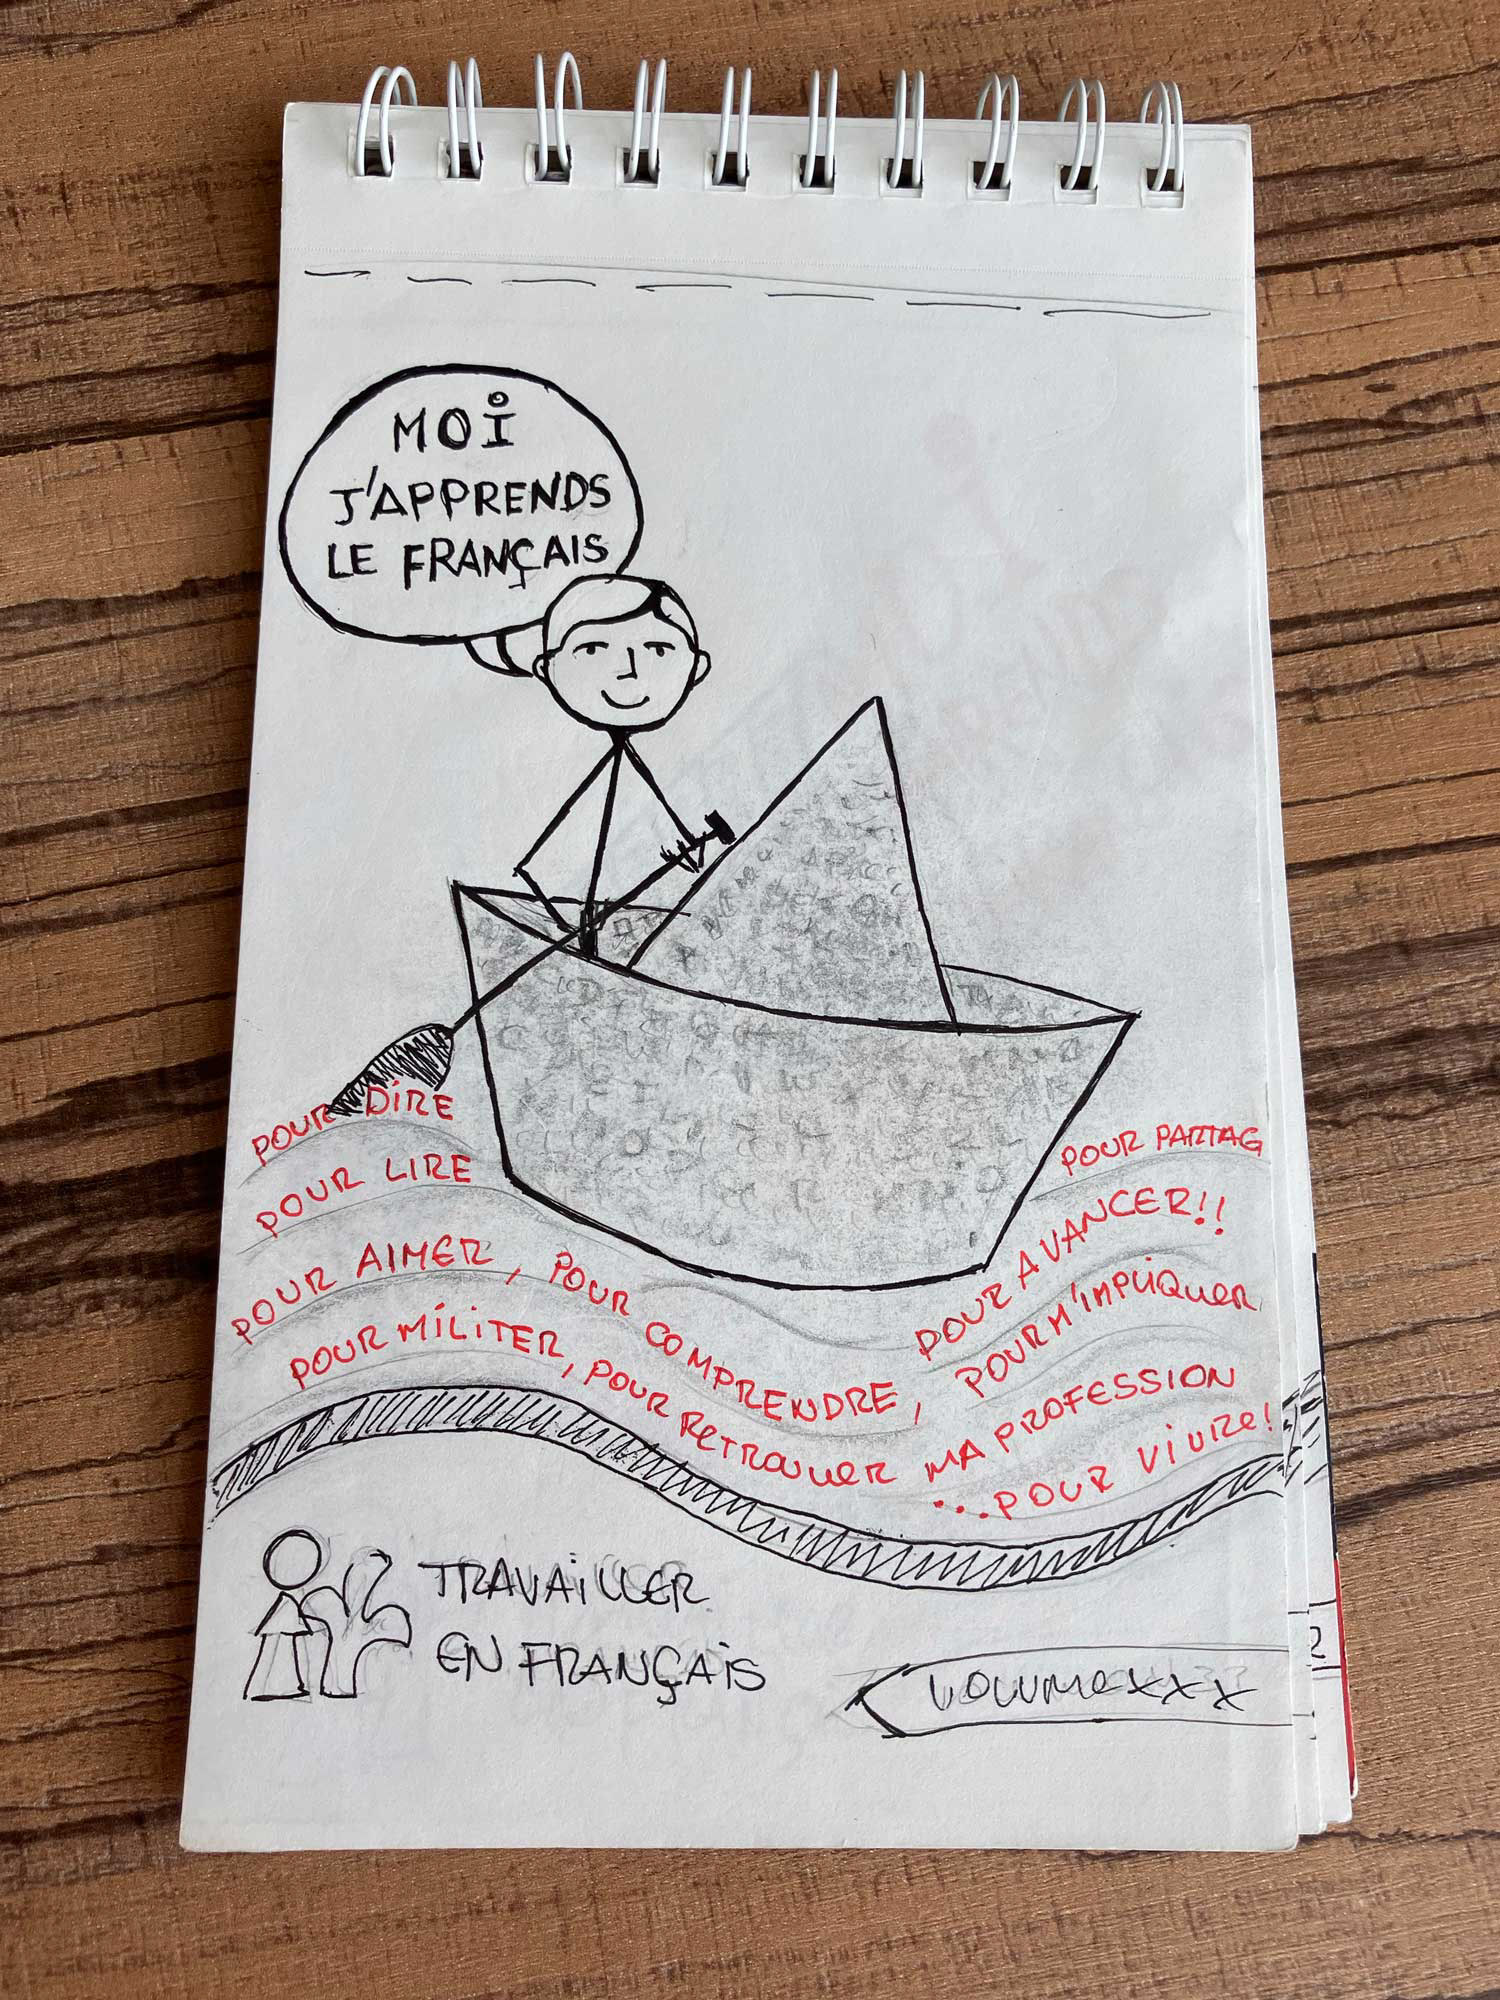 MOI
J'APPRENDS
LE FRANÇAIS
POUR DIRE
POUR LIRE
POUR AIMER, POUR COMPRENDRE,
POUR MILITER, POUR RETROUVER MA PROFESSION
POUR PARTAG
POUR AVANCER!!
POUR M'IMPLIQUER
...POUR VIVRE!
TRAVAILLER
EN FRANÇAIS
VOLUME XXX
2